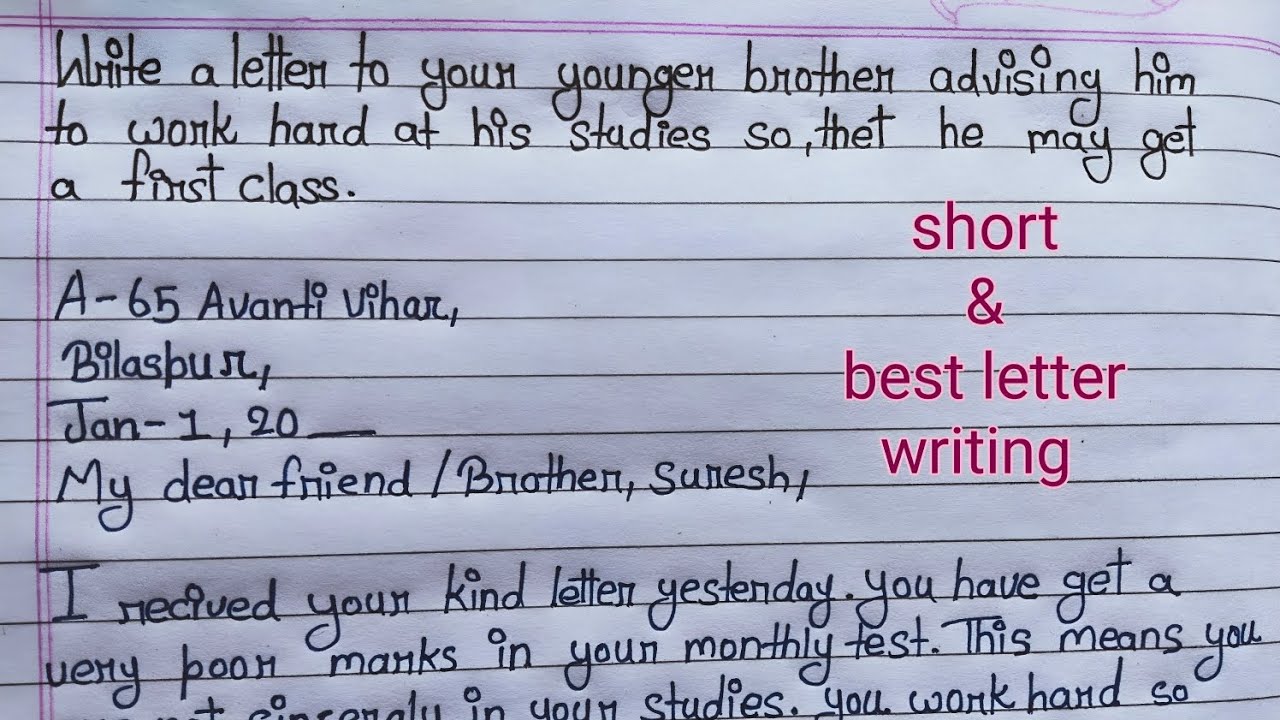 Write a letter to your younger brother advising him
to work hard at his studies so, thet he may get
a first class.
short
&
best letter
writing
A-65 Avanti Vihar,
Bilaspur,
Jan-1, 20__
My dear friend / Brother, Suresh,
I recived your kind letter yesterday. you have get a
very poor marks in your monthly test. This means you
sincerely in your studies. you work hard so